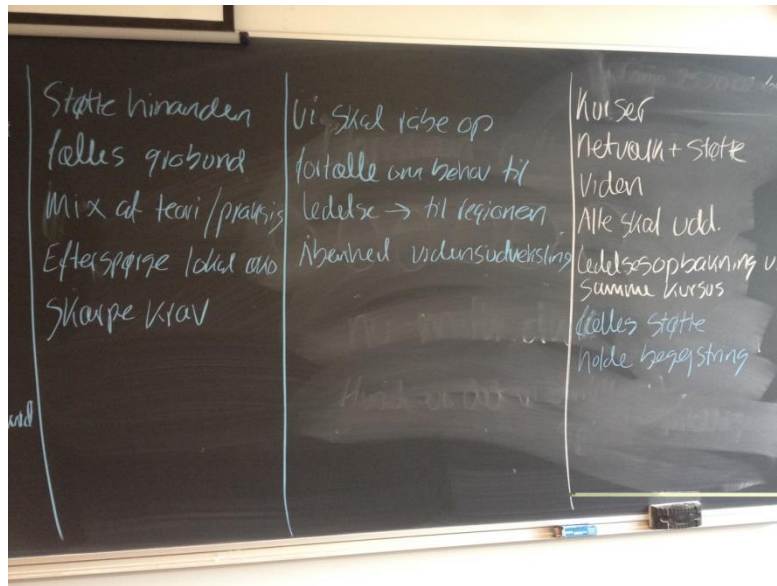 Støtte hinanden
fælles grobund
Mix af teori/praksis
Efterspørge lokal
Skarpe krav
Vi skal råbe op
fortælle om behov til
ledelse → til regionen
Åbenhed vidensudveksling
Kurser
netværk + støtte
Viden
Alle skal udd.
ledelsesopbakning
samme kursus
fælles støtte
holde begejstring